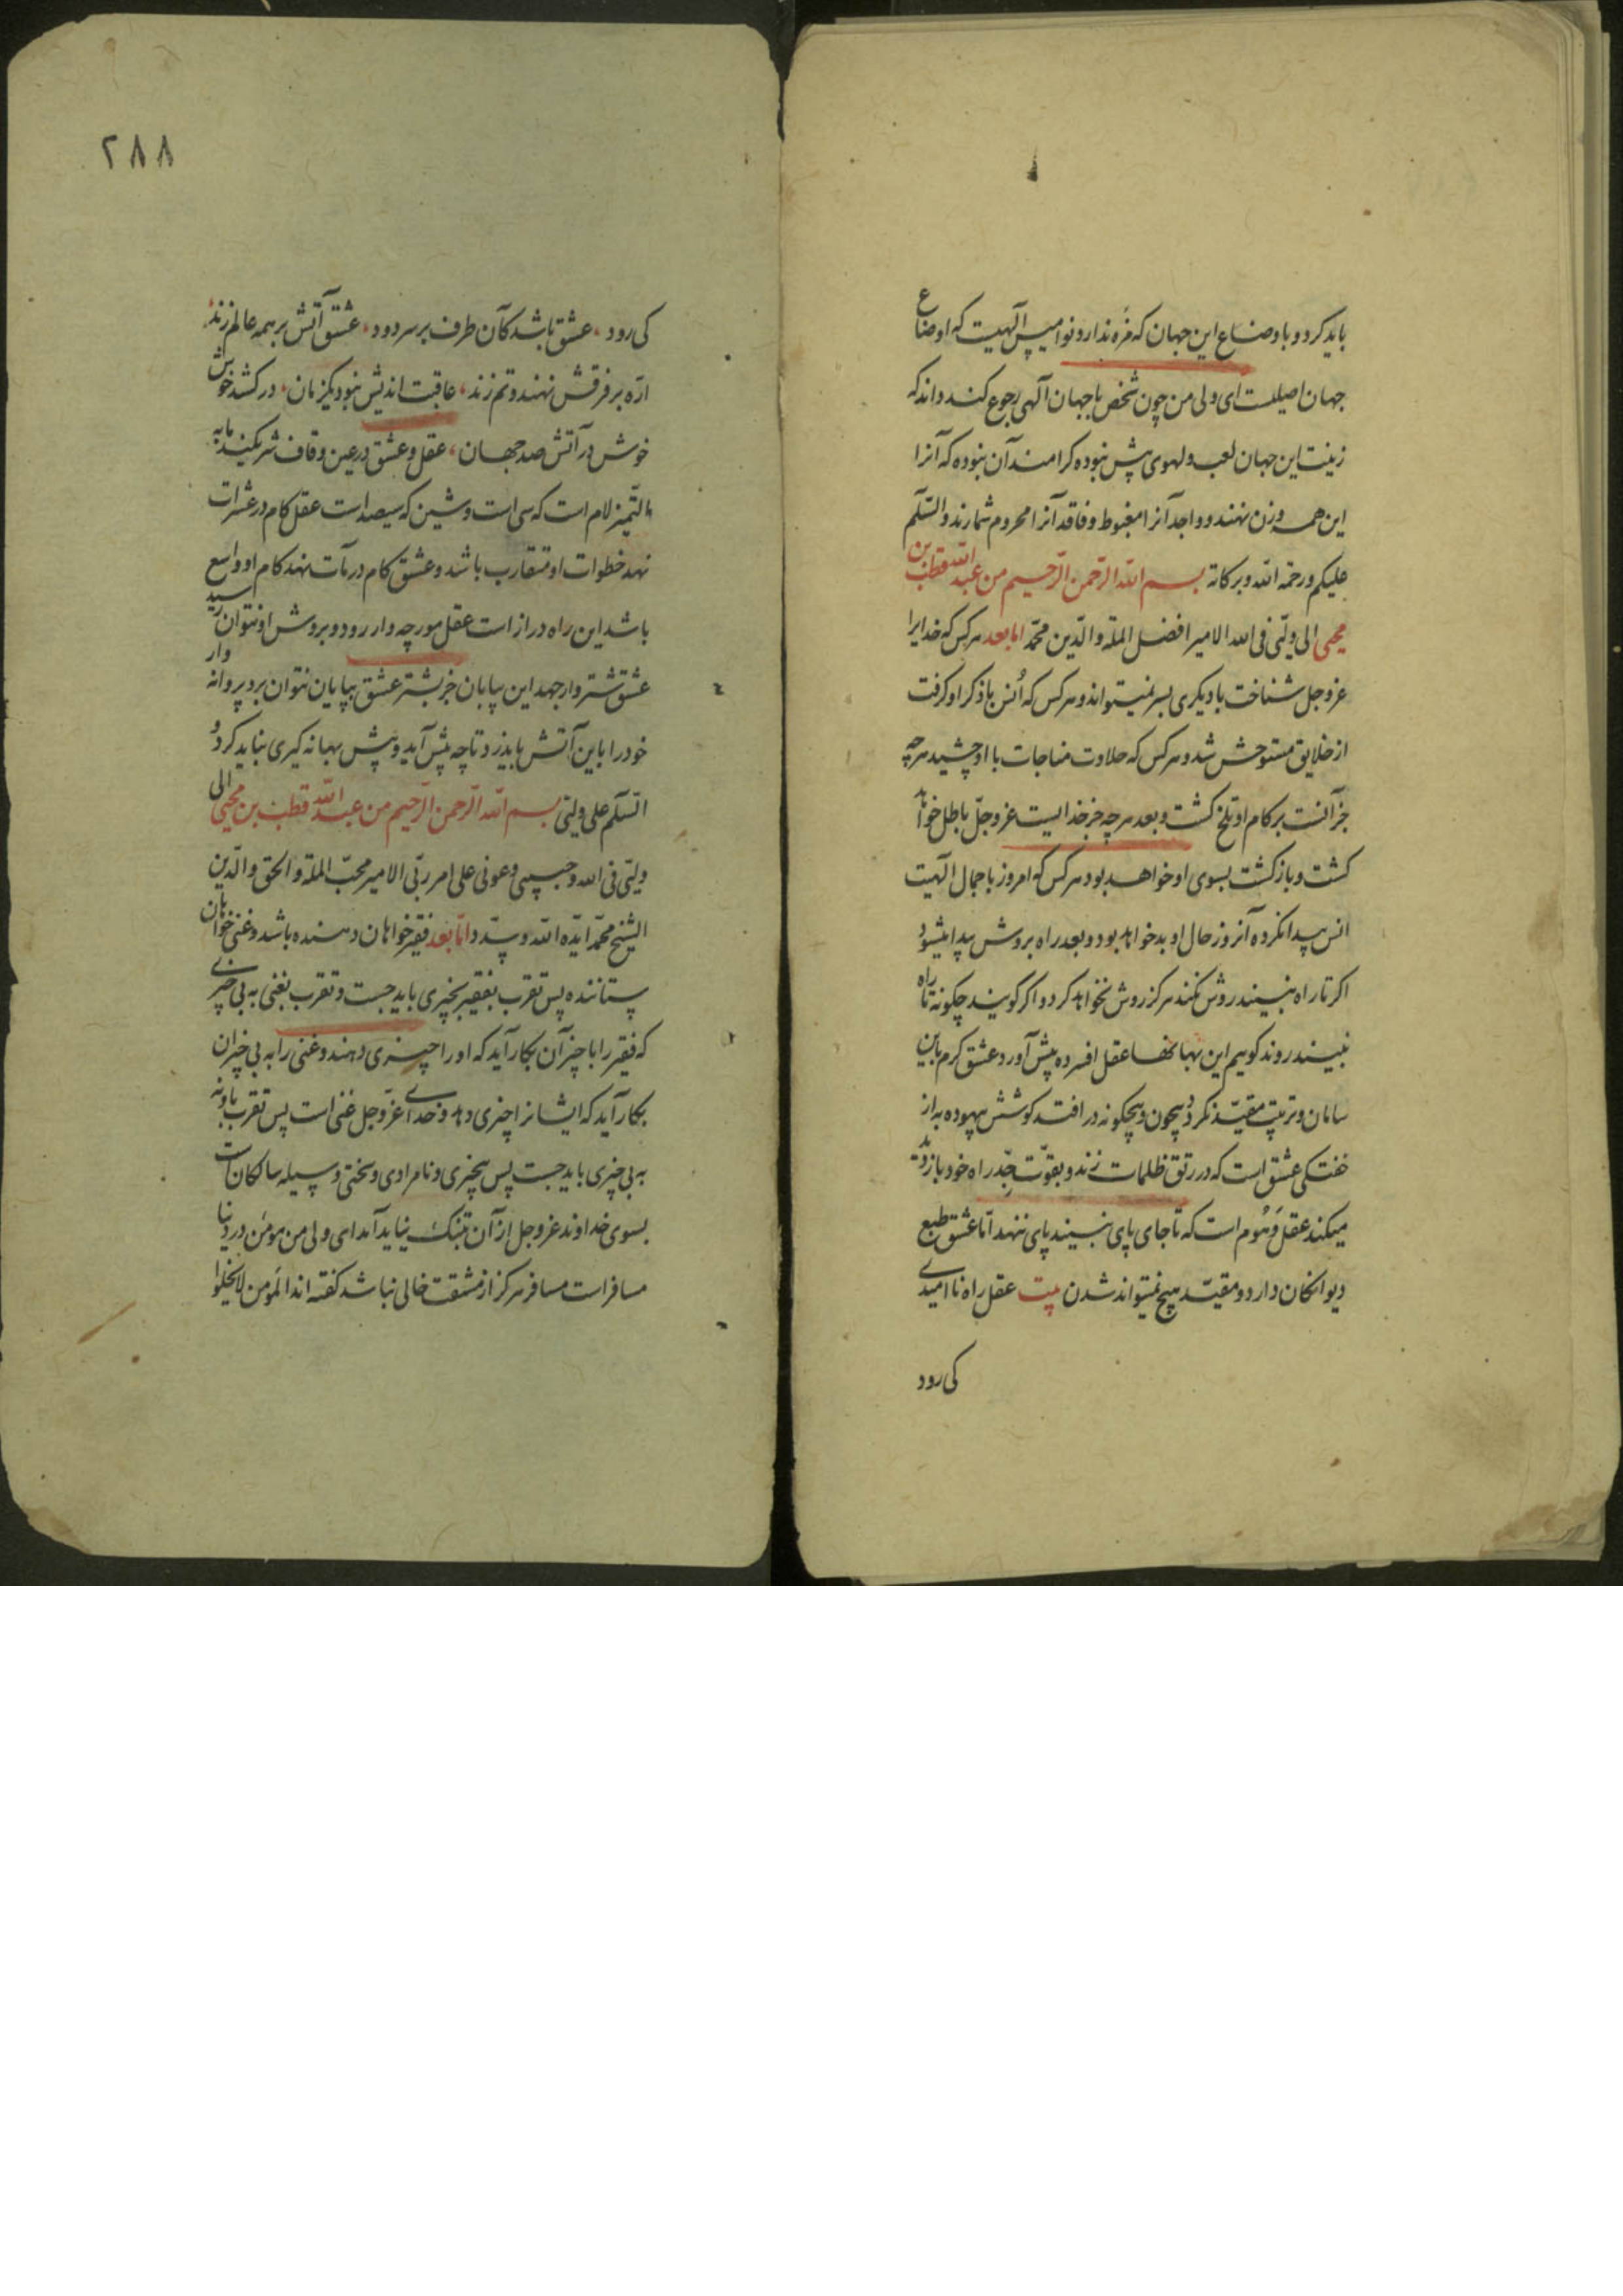 باید کرد و باوضاع این جهان که مزه ندارد و نوامیس الهیت که اوضاع
جهان اصیلست ای ولی من چون شخص با جهان آلهی رجوع کند داند که
زینت این جهان لعب و لهوی پش نبوده کرامند آن نبوده که آنرا
این همه وزن نهند و واجد آنرا مغبوط و فاقد آنرا محروم شمارند والسّلم
علیکم ورحمة الله وبرکاته بسم الله الرّحمن الرّحیم من عبد الله قطب بن
محیی الی ولیّی فی الله الامیر افضل الملّة والدّین محمّد اما بعد هرکس که خدایرا
عزوجل شناخت با دیکری بسر نمیتواند و هرکس که اُنس با ذکر او کرفت
از خلایق مستوحش شد و هرکس که حلاوت مناجات با او چشید هرچه
جز آنست بر کام او تلخ کشت و بعد هرچه جز خدایست عزوجلّ باطل خواهد
کشت و بازکشت بسوی او خواهد بود هرکس که امروز با جمال الهیت
انس پیدا نکرده آنروز حال او بد خواهد بود و بعد راه بروش پیدا میشود
اکر تا راه نبینند روش نکنند هرکز روش نخواهد کرد و اکر کویند چکونه تا راه
نبینند روند کوییم این بهانها عقل افسرده پیش آورد عشق کرم باین
سامان و ترتیب مقیّد نکردد بیچون و بیچکونه در افتد کوشش بیهوده به از
خفتکی عشق است که در رتق ظلمات زند و بقوّت جِدّ راه خود باز دید
میکند عقل وَهُوم است که تا جای پای نبیند پای ننهد امّا عشق طبع
دیوانکان دارد و مقیّد هیچ نمیتواند شدن بیت عقل راه ناامیدی
کی رود
۲۸۸
کی رود ، عشق باشد کآن طرف بر سر دود ، عشق آتش بر همه عالم زند ،
ارّه بر فرقش نهند و تم زند ، عاقبت اندیش نبود یکزمان ، در کشد خوش
خوش در آتش صد جهان ، عقل و عشق در عین و قاف شریکیند مابه
التّمیز لام است که سی است و شین که سیصد است عقل کام در عشرات
نهد خطوات او متقارب باشد و عشق کام در مآت نهد کام او واسع
باشد این راه دراز است عقل مورچه وار رود و بروش او نتوان رسید
عشق شتر وار جهد این بیابان جز بشتر عشق بپایان نتوان برد پروانه وار
خود را باین آتش باید زد تا چه پیش آید و پیش بهانه کیری نباید کرد و
السّلم علی ولیّی بسم الله الرّحمن الرّحیم من عبد الله قطب بن محیی الی
ولیّی فی الله وحبیبی وعونی علی امر ربّی الامیر محبّ الملّة والحق والدّین
الشیخ محمّد ایّده الله وسدّد امّا بعد فقیر خواهان دهنده باشد و غنی خواهان
ستاننده پس تقرب بفقیر بچیزی باید جست و تقرب بغنی به بی چیزی
که فقیر را با چیز آن بکار آید که او را چیزی دهند و غنی را به بی چیزان
بکار آید که ایشانرا چیزی دهد و خدای عزّوجل غنی است پس تقرب باو نه
به بی چیزی باید جست پس بیچیزی و نامرادی و سختی وسیله سالکان است
بسوی خداوند عزوجل از آن بتنک نیاید آمد ای ولی من مومن در دنیا
مسافر است مسافر هرکز از مشقت خالی نباشد کفته اند المؤمن لایخلوا